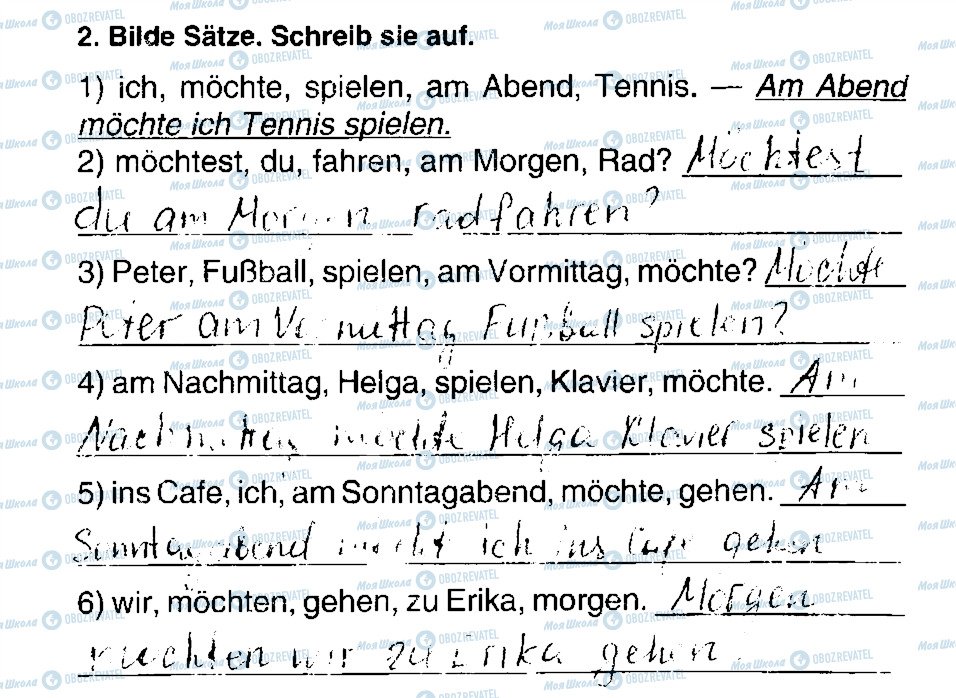 2. Bilde Sätze. Schreib sie auf.
1) ich, möchte, spielen, am Abend, Tennis. — Am Abend
möchte ich Tennis spielen.
2) möchtest, du, fahren, am Morgen, Rad? Möchtest
du am Morgen radfahren?
3) Peter, Fußball, spielen, am Vormittag, möchte? Möchte
Peter am Vormittag Fußball spielen?
4) am Nachmittag, Helga, spielen, Klavier, möchte. Am
Nachmittag möchte Helga Klavier spielen
5) ins Cafe, ich, am Sonntagabend, möchte, gehen. Am
Sonntagabend möcht ich ins Cafe gehen
6) wir, möchten, gehen, zu Erika, morgen. Morgen
möchten wir zu Erika gehen.